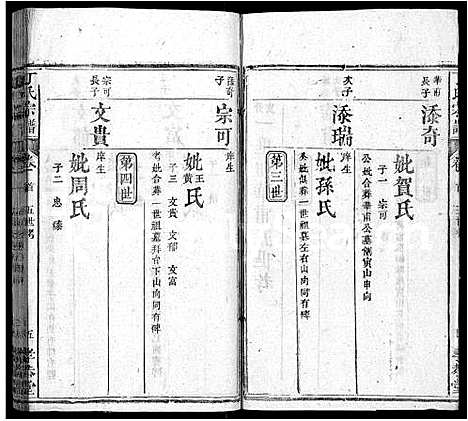 長子
添奇
妣賀氏
子一 宗可
公妣合葬華甫公墓側寅山申向
次子
添瑞
庠生
妣孫氏
公妣俱葬一世祖墓左右山向同有碑
第三世
添奇
子
宗可
庠生
妣王黄氏
子三 文貴 文郁 文富
考妣合葬一世祖墓拜台下山向同有碑
第四世
宗可
長子
文貴
庠生
妣周氏
子二 忠
丁氏宗譜
卷首
五世考
五